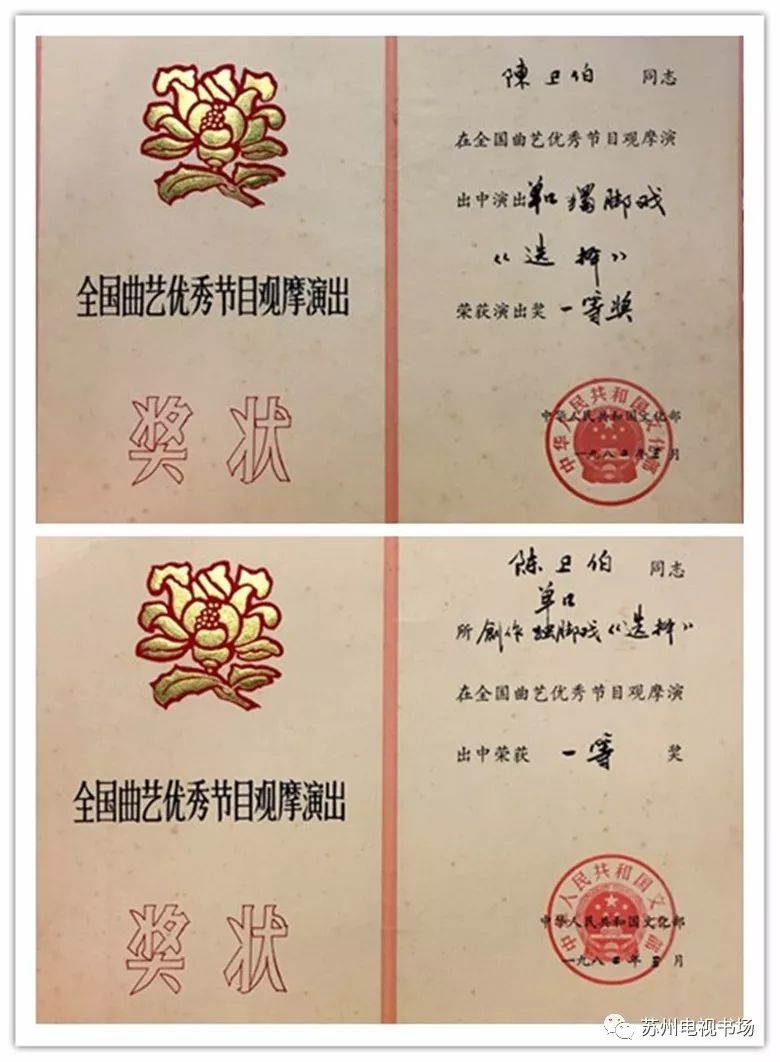 全国曲艺优秀节目观摩演出
奖状
陳卫伯 同志
在全国曲艺优秀节目观摩演
出中演出单口獨脚戏
《选择》
荣获演出奖 一等奖
中华人民共和国文化部
一九八 年 月
中华人民共和国文化部
全国曲艺优秀节目观摩演出
奖状
陈卫伯 同志
单口
所創作独脚戏《选择》
在全国曲艺优秀节目观摩演
出中荣获 一等 奖
中华人民共和国文化部
一九八 年 月
中华人民共和国文化部
苏州电视书场